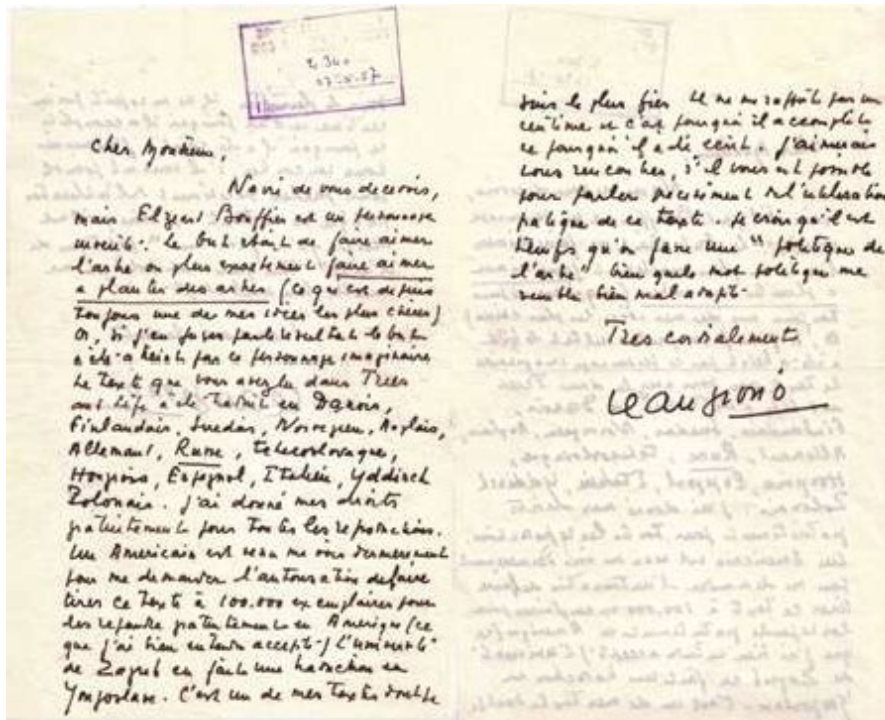 Cher Monsieur,
Navré de vous decevoir,
mais Elzeard Bouffier est un personnage
inventé. Le but etait de faire aimer
l'arbre ou plus exactement faire aimer
a planter des arbres (ce qui est depuis
toujours une de mes idées les plus chères)
Or, si j'en juge par le resultat le but
a été atteint par ce personnage imaginaire
Le texte que vous avez lu dans Trees
and Life a été traduit en Danois,
Finlandais, Suedois, Norvegien, Anglais,
Allemand, Russe, Tchecoslovaque,
Hongrois, Espagnol, Italien, Yddisch
Polonais. J'ai donné mes droits
gratuitement pour toutes les reproductions.
Un Americain est venu me voir dernierement
pour me demander l'autorisation de faire
tirer ce texte à 100.000 exemplaires pour
les repandre gratuitement en Amerique (ce
que j'ai bien entendu accepté) L'université
de Zagreb en fait une traduction en
Yougoslave. C'est un de mes textes dont je
suis le plus fier. Il ne me rapporte pas un
centime et c'est pourquoi il accomplit
ce pourquoi il a été ecrit. J'aimerais
vous rencontrer, s'il vous est possible
pour parler precisement de l'utilisation
pratique de ce texte. Je crois qu'il est
temps qu'on fasse une "politique de
l'arbre" bien que le mot politique me
semble bien mal adapté.
Tres cordialement
Jean Giono